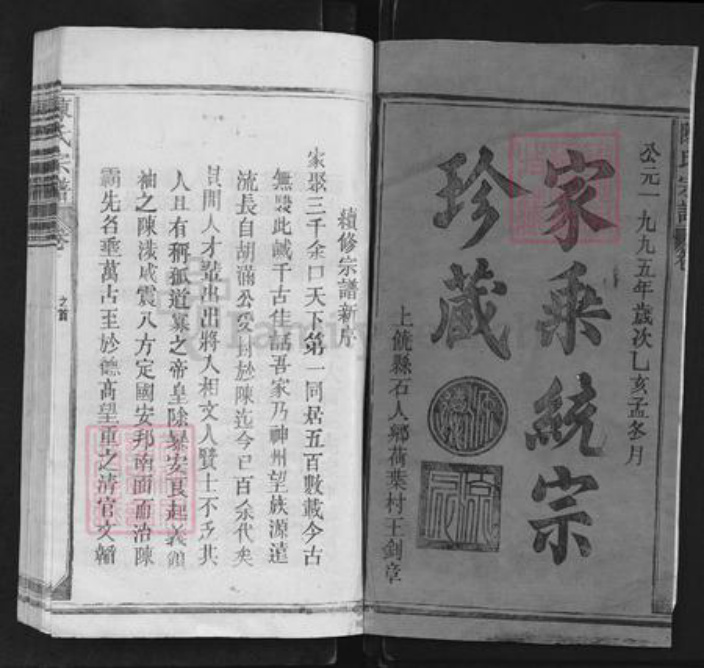 公元一九九五年歲次乙亥孟冬月
家乘統宗
珍藏
上饒縣石人鄉荷葉村王劍章
續修宗譜新序
家聚三千余口天下第一同居五百數載今古
無雙此誠千古佳話吾家乃神州望族源遠
流長自胡滿公受封於陳迄今已百余代矣
其間人才輩出出將入相文人賢士不乏其
人且有稱孤道寡之帝皇除暴安良起義領
袖之陳涉威震八方定國安邦南面而治陳
霸先名垂萬古至於德高望重之清官文翰
陳氏宗譜
卷
之首